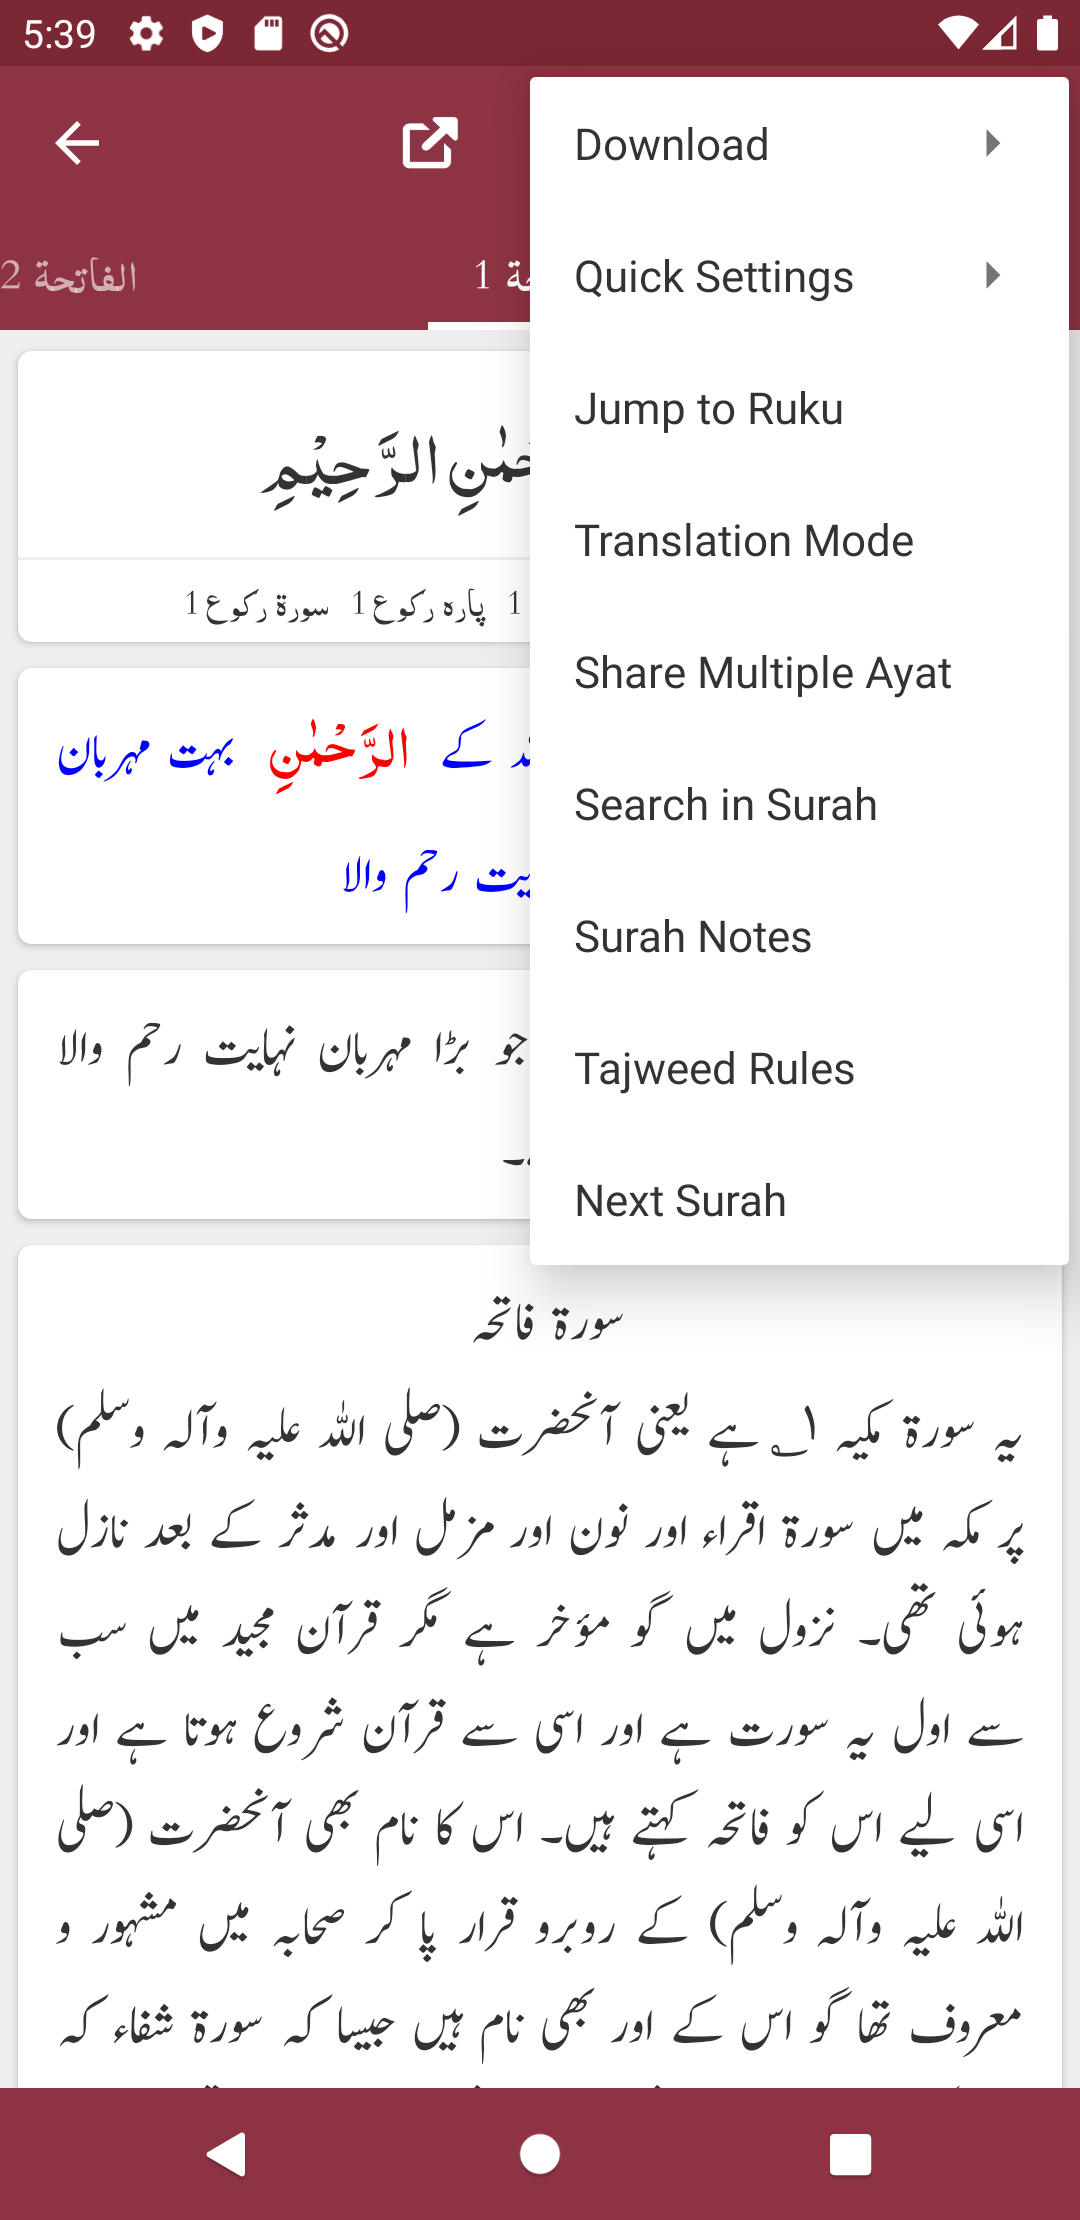 5:39
Download
Quick Settings
Jump to Ruku
Translation Mode
Share Multiple Ayat
Search in Surah
Surah Notes
Tajweed Rules
Next Surah
الفاتحة 2
1
الرَّحِيْمِ
1 پارہ رکوع 1 سورۃ رکوع 1
کے الرَّحْمٰنِ بہت مہربان
رحم والا
جو بڑا مہربان نہایت رحم والا
سورۃ فاتحہ
یہ سورۃ مکیہ ١؂ ہے یعنی آنحضرت (صلی اللہ علیہ وآلہ وسلم)
پر مکہ میں سورۃ اقراء اور نون اور مزمل اور مدثر کے بعد نازل
ہوئی تھی۔ نزول میں گو مؤخر ہے مگر قرآن مجید میں سب
سے اول یہ سورت ہے اور اسی سے قرآن شروع ہوتا ہے اور
اسی لیے اس کو فاتحہ کہتے ہیں۔ اس کا نام بھی آنحضرت (صلی
اللہ علیہ وآلہ وسلم) کے روبرو قرار پا کر صحابہ میں مشہور و
معروف تھا گو اس کے اور بھی نام ہیں جیسا کہ سورۃ شفاء کہ